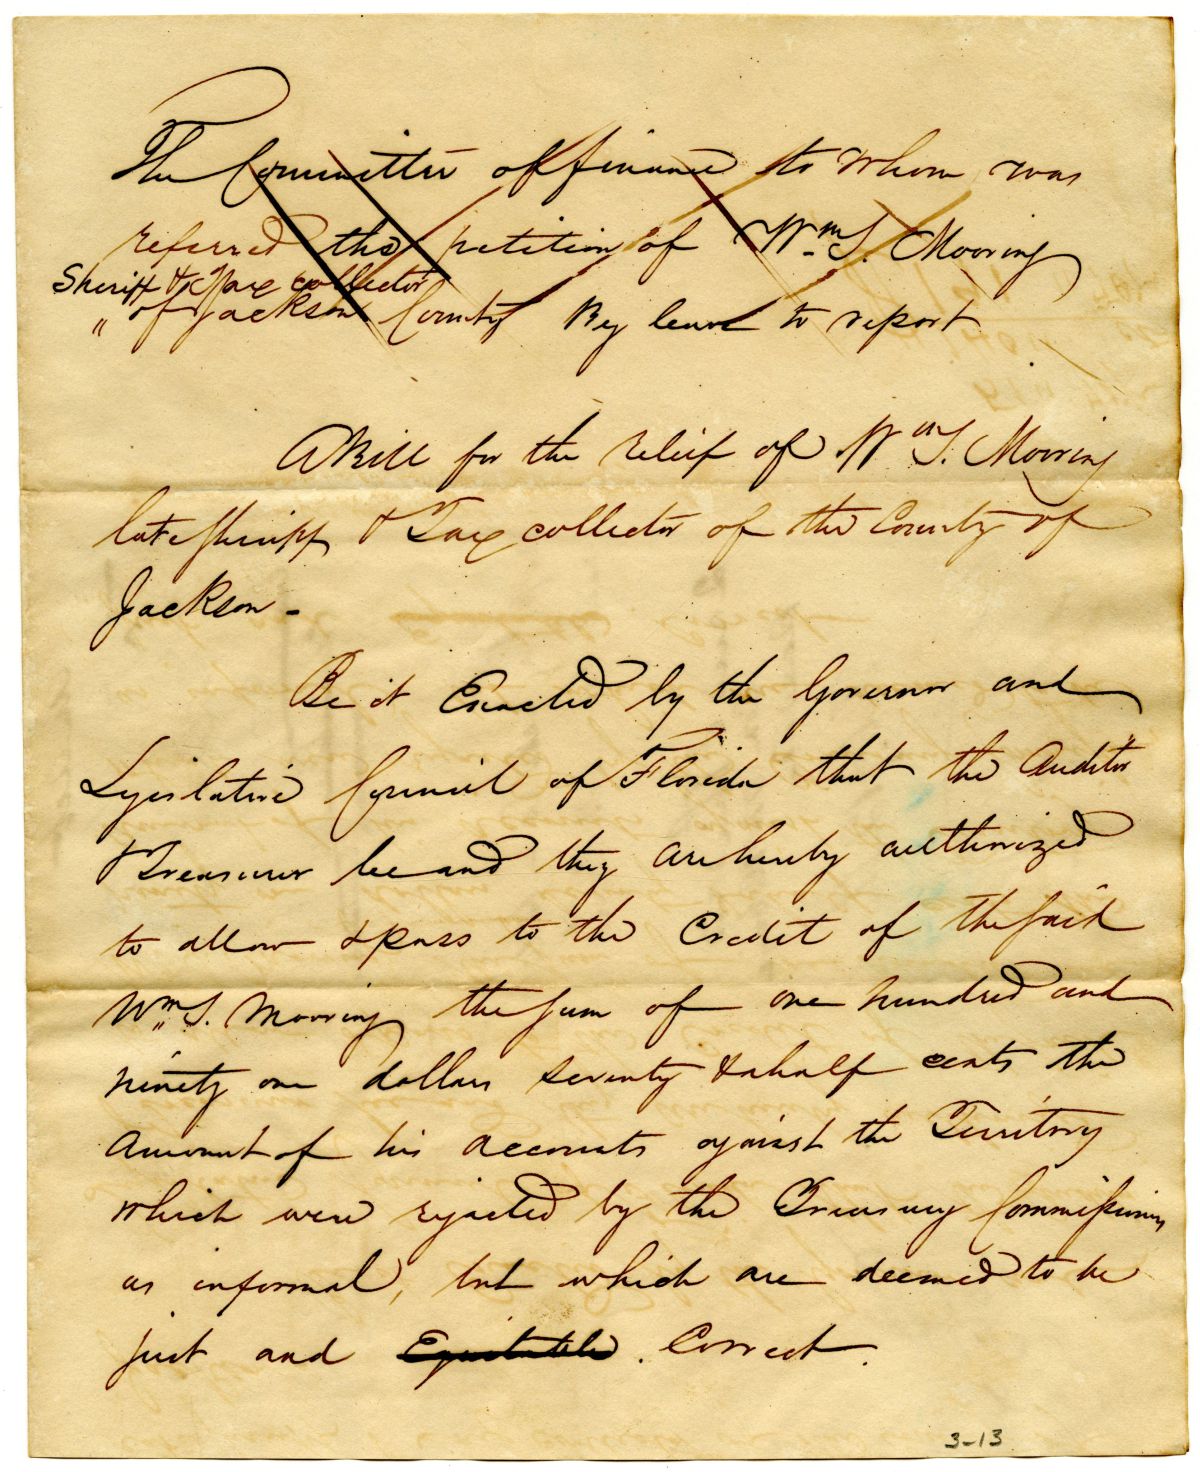 The Committee of finance to whom was
referred the petition of Wm S. Mooring
Sheriff & Tax collector
" of Jackson County Beg leave to report
A Bill for the relief of Wm S. Mooring
late Sheriff & Tax collector of the County of
Jackson -
Be it Enacted by the Governor and
Legislative Council of Florida that the Auditor
& Treasurer be and they are hereby authorized
to allow & pass to the Credit of the said
Wm S. Mooring the sum of one hundred and
ninety one dollars seventy & a half cents the
amount of his accounts against the Territory
which were rejected by the Treasury Commissioners
as informal, but which are deemed to be
just and Equitable. Correct.
3-13